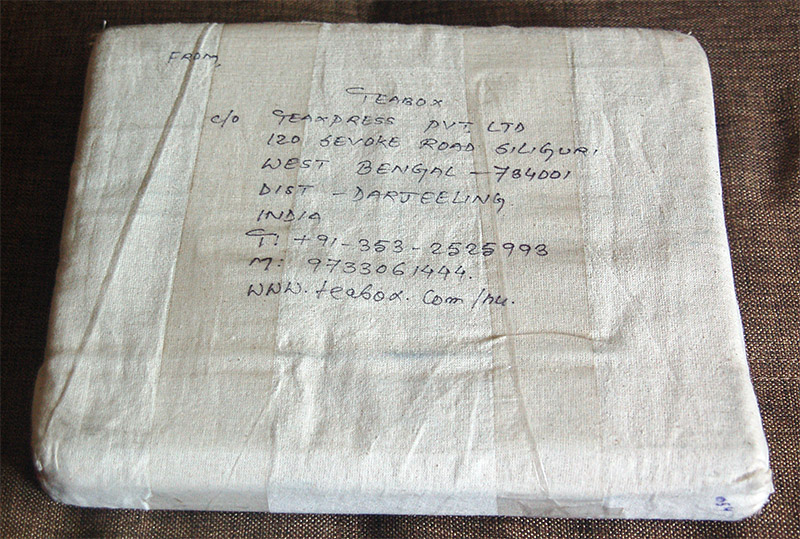 FROM,
TEABOX
c/o TEAXPRESS PVT LTD
120 SEVOKE ROAD SILIGURI
WEST BENGAL - 734001
DIST - DARJEELING
INDIA
T: +91-353-2525993
M: 9733061444.
WWW.teabox.com/ru.